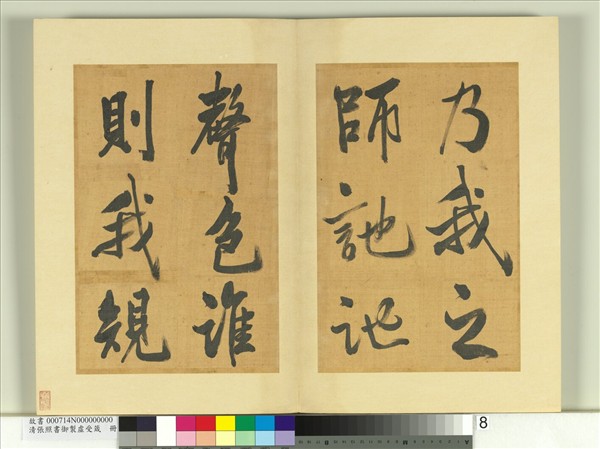 乃我之
師訑訑
聲色誰
則我規
故書 000714N000000000
清張照書御製虛受箴 冊
8